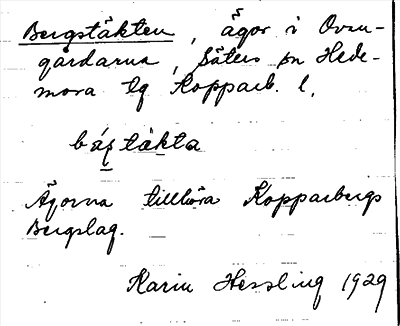 Bergstäkten, ägor i Ovan-
gårdarna, Säters sn Hede-
mora tg Kopparb. l.
báʒtäkta
Ägorna tillhöra Kopparbergs
Bergslag.
Karin Hessling 1929